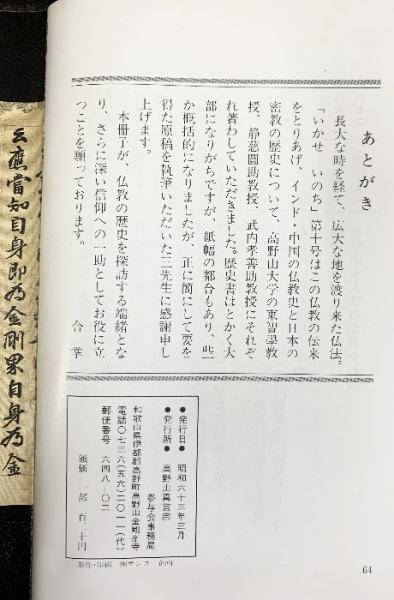 あとがき
長大な時を経て、広大な地を渡り来た仏法。
「いかせ いのち」第十号はこの仏教の伝来
をとりあげ、インド・中国の仏教史と日本の
密教の歴史について、高野山大学の東智學教
授、静慈圓助教授、武内孝善助教授にそれぞ
れ著わしていただきました。歴史書はとかく大
部になりがちですが、紙幅の都合もあり、些
か概括的になりましたが、正に簡にして要を
得た原稿を執筆いただいた三先生に感謝申し
上げます。
本冊子が、仏教の歴史を探訪する端緒とな
り、さらに深い信仰への一助としてお役に立
つことを願っております。
合掌
●発行日● 昭和六十三年三月
●発行所● 高野山真言宗
参与会事務局
和歌山県伊都郡高野町高野山金剛峯寺
電話〇七三六(五六)二〇一一(代)
郵便番号 六四八-〇二
頒価 一部 百二十円
制作・印刷
64
云應當知自身即為金剛界自身為金